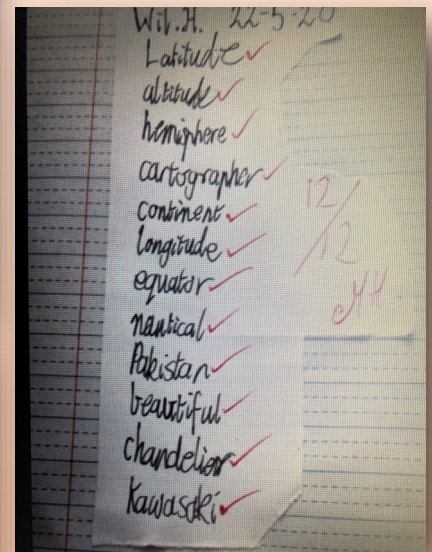 Wil.H. 22-5-20
Latitude
altitude
hemisphere
cartographer
continent
longitude
equator
nautical
Pakistan
beautiful
chandelier
Kawasaki
12/12
MH